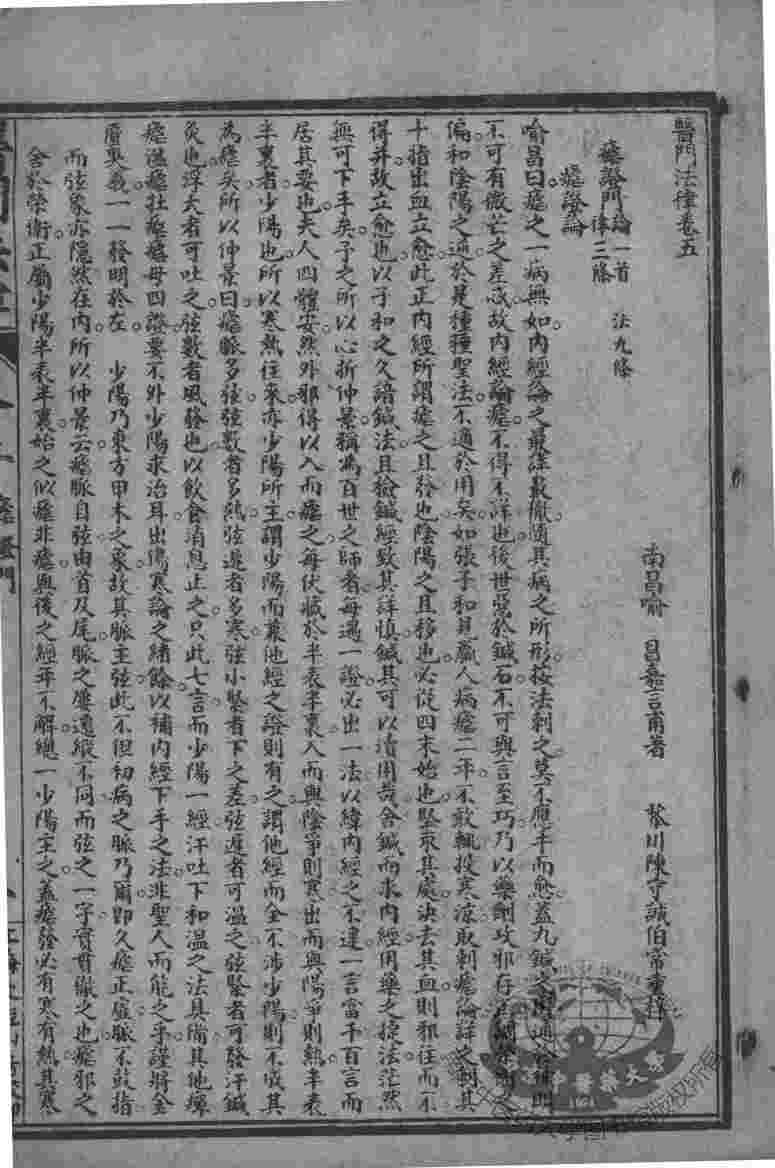 醫門法律卷五
南昌喻　昌嘉言甫著　　黎川陳守誠伯常重梓
瘧證門論一首　法九條
律三條
瘧證論
喻昌曰瘧之一病無如內經論之最詳最徹隨其病之所形按法刺之莫不應手而愈蓋九鍼之用通於神明
不可有微芒之差忒故內經論瘧不得不詳也後世惡於鍼石不可與言至巧乃以藥劑攻邪存正調
偏和陰陽之適於是種種聖法不適於用矣如張子和見羸人病瘧二年不敢輒投寒涼取刺瘧論詳之刺其
十指出血立愈此正內經所謂瘧之且發也陰陽之且移也必從四末始也堅束其處決去其血則邪往而不
得并故立愈也以子和之久諳鍼法且檢鍼經致其詳慎鍼其可以漬用哉舍鍼而求內經用藥之捷法茫然
無可下手矣予之所以心折仲景稱為百世之師者每遇一證必出一法以緯內經之不逮一言當千百言而
居其要也夫人四體安然外邪得以入而瘧之每伏藏於半表半裏入而與陰爭則寒出而與陽爭則熱半表
半裏者少陽也所以寒熱往來亦少陽所主謂少陽而兼他經之證則有之謂他經而全不涉少陽則不成其
為瘧矣所以仲景曰瘧脈多弦弦數者多熱弦遲者多寒弦小緊者下之差弦遲者可溫之弦緊者可發汗鍼
灸也浮大者可吐之弦數者風發也以飲食消息止之只此七言而少陽一經汗吐下和溫之法具備其他癉
瘧溫瘧牡瘧瘧母四證要不外少陽求治耳出傷寒論之緒餘以補內經下手之法非聖人而能之乎謹將金
匱奧義一一發明於左　少陽乃東方甲木之象故其脈主弦此不但初病之脈乃爾即久瘧正虛脈不鼓指
而弦象亦隱然在內所以仲景云瘧脈自弦由首及尾脈之屢遷縱不同而弦之一字實貫徹之也瘧邪之
舍於榮衛正屬少陽半表半裏始之似瘧非瘧與後之經年不解總一少陽主之蓋瘧發必有寒有熱其寒